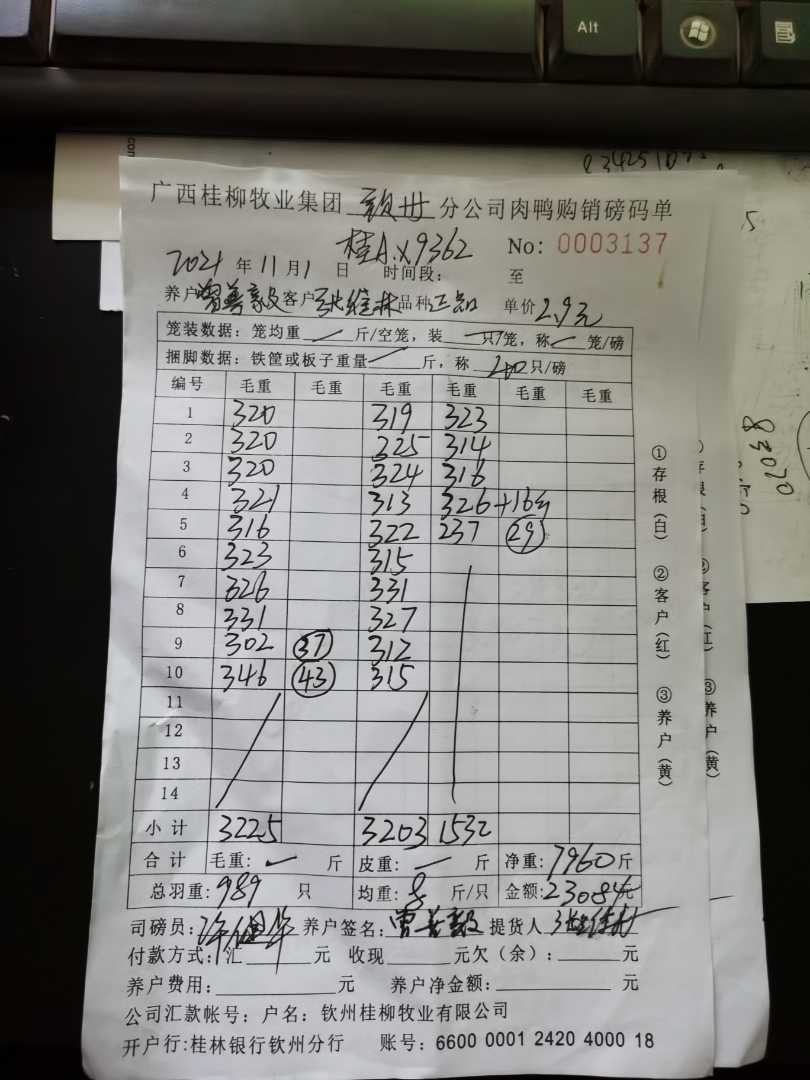 Alt
83425107
广西桂柳牧业集团 钦州 分公司肉鸭购销磅码单
桂A.X9362 No: 0003137
2021 年 11 月 1 日 时间段: 至
养户 曾善毅 客户 张维林 品种 正品 单价 2.9元
笼装数据: 笼均重 斤/空笼, 装 只/笼, 称 笼/磅
捆脚数据: 铁筐或板子重量 斤, 称 40 只/磅
编号 毛重 毛重 毛重 毛重 毛重 毛重
1 320 319 323
2 320 325 314
3 320 324 316
4 321 313 326 +16斤
5 316 322 237 29
6 323 315
7 326 331
8 331 327
9 302 37 312
10 346 43 315
11
12
13
14
小计 3225 3203 1532
合计 毛重: 斤 皮重: 斤 净重: 7960 斤
总羽重: 989 只 均重: 8 斤/只 金额: 23084元
司磅员: 养户签名: 曾善毅 提货人
付款方式: 汇 元 收现 元欠(余): 元
养户费用: 元 养户净金额: 元
公司汇款帐号: 户名: 钦州桂柳牧业有限公司
开户行:桂林银行钦州分行 账号: 6600 0001 2420 4000 18
①存根(白) ②客户(红) ③养户(黄)
83070